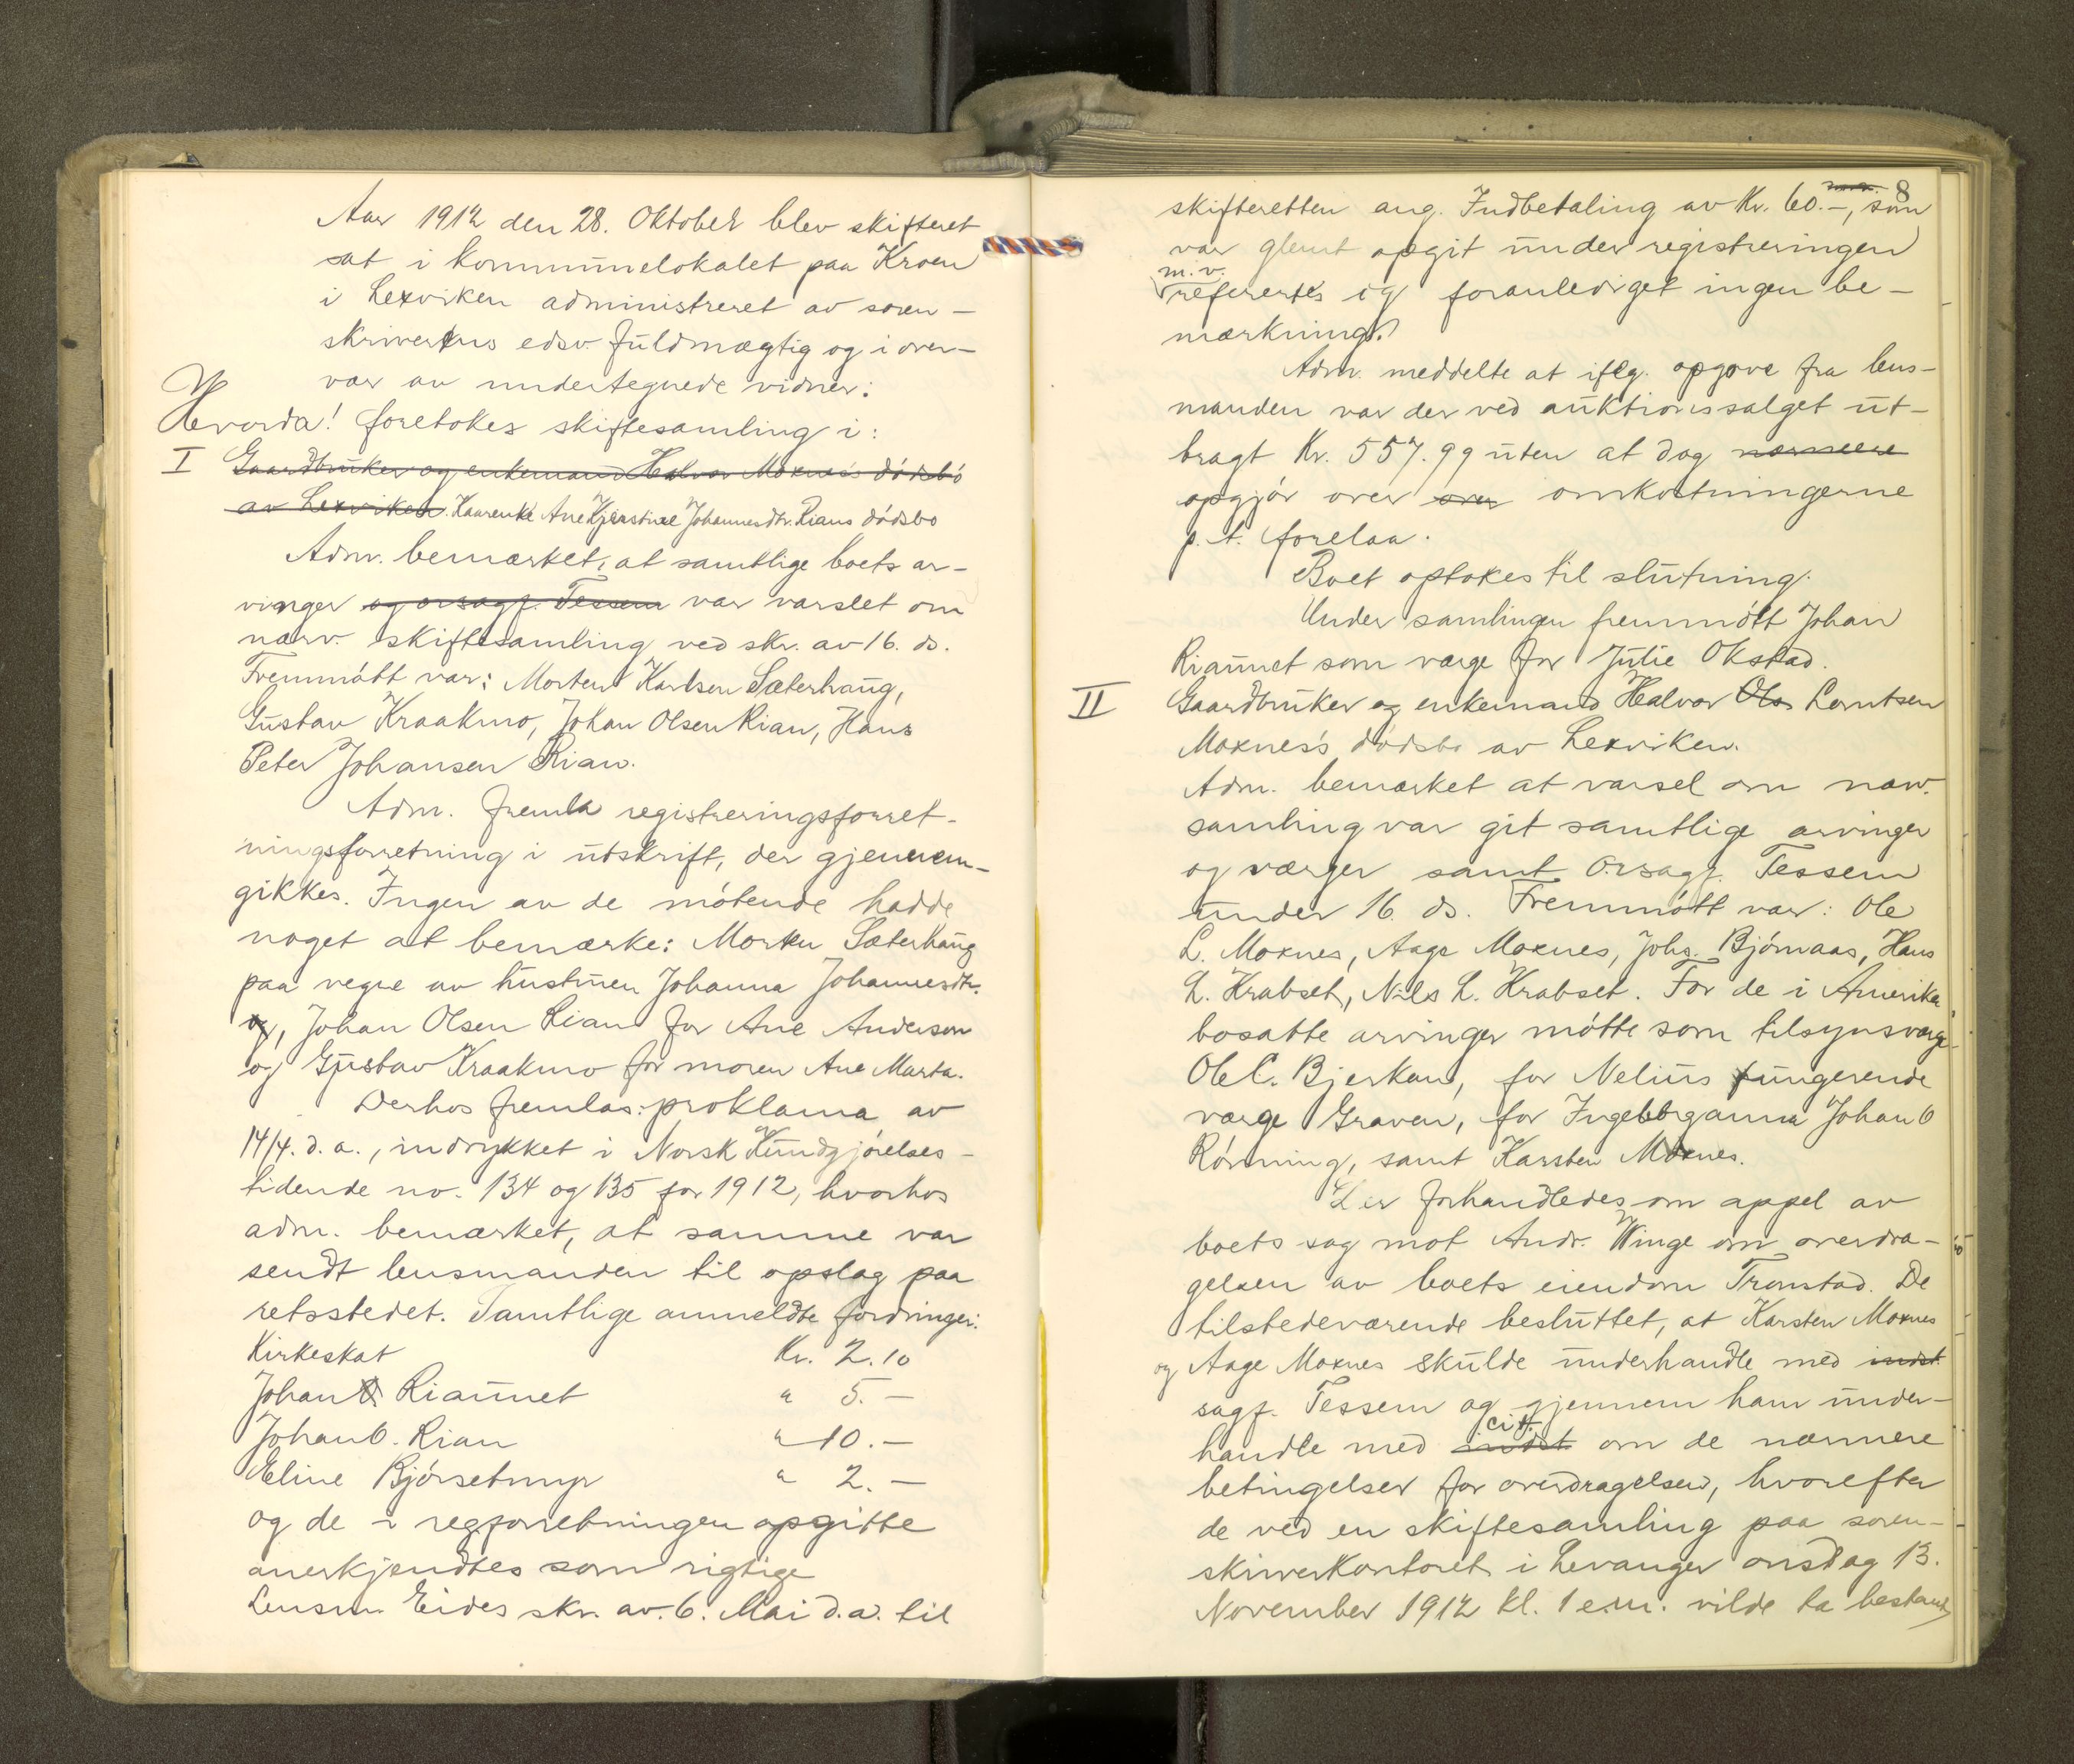 Aar 1912 den 28. Oktober blev skifteret
sat i kommunelokalet paa Kroen
i Lexviken administreret av soren-
skriverens edsv. fuldmægtig og i over-
vær av undertegnede vidner:
Hvorda! foretokes skiftesamling i:
I Gaardbruker og enkemand Halvor Moxnes's dödsbo
av Lexviken. Kaarenke Ane Kjerstine Johannesdtr. Rians dödsbo
Adm. bemærket, at samtlige boets ar-
vinger og orsagf. Tessem var varslet om
nærv. skiftesamling ved skr. av 16. ds.
Fremmött var: Morten Karlsen Sæterhaug,
Gustav Kraakmo, Johan Olsen Rian, Hans
Peter Johansen Rian.
Adm. fremla registreringsforret-
ningsforretning i utskrift, der gjennem-
gikkes. Ingen av de mötende hadde
noget at bemærke: Morten Sæterhaug
paa vegne av hustruen Johanna Johannesdtr.
og, Johan Olsen Rian for Ane Anderson
og Gustav Kraakmo for moren Ane Marta.
Derhos fremlas: proklama av
14/4. d.a., indrykket i Norsk Kundgjörelses-
tidende no. 134 og 135 for 1912, hvorhos
adm. bemærket, at samme var
sendt lensmanden til opslag paa
retsstedet. Samtlige anmeldte fordringer:
Kirkeskat Kr. 2.10
Johan O. Riaunet " 5.-
Johan O. Rian " 10.-
Eline Björsetmyr " 2.-
og de i regforretningen opgitte
anerkjendtes som rigtige
Lensm. Eides skr. av. 6. Mai d.a. til
8
skifteretten ang. Indbetaling av Kr. 60.-, som
var glemt opgit under registreringen
m.v.
refereres og foranlediget ingen be-
mærkning.
Adm. meddelte at iflg. opgave fra lens-
manden var der ved auktionssalget ut-
bragt Kr. 557.99 uten at dog nærmere
opgjör over over omkostningerne
p.t. forelaa.
Boet optokes til slutning.
Under samlingen fremmött Johan
Riaunet som værge for Julie Okstad.
II Gaardbruker og enkemand Halvor Ols Lorntsen
Moxnes's dödsbo av Lexviken.
Adm. bemærket at varsel om nærv.
samling var git samtlige arvinger
og værger samt O.rsagf. Tessem
under 16. ds. Fremmött var: Ole
L. Moxnes, Aage Moxnes, Johs. Björnaas, Hans
L. Krabset, Nils L. Krabset. For de i Amerika
bosatte arvinger mötte som tilsynsværge
Ole C. Bjerkan, for Nelius fungerende
værge Graven, for Ingeborganna Johan O
Rönning, samt Karsten Moxnes.
Der forhandledes om appel av
boets sag mot Andr. Winge om overdra-
gelsen av boets eiendom Tronstad. De
tilstedeværende besluttet, at Karsten Moxnes
og Aage Moxnes skulde underhandle med indst
sagf. Tessem og gjennem ham under-
cit.
handle med indst om de nærmere
betingelser for overdragelsen, hvorefter
de ved en skiftesamling paa soren-
skriverkontoret i Levanger onsdag 13.
November 1912 kl. 1 e.m. vilde ta bestemt